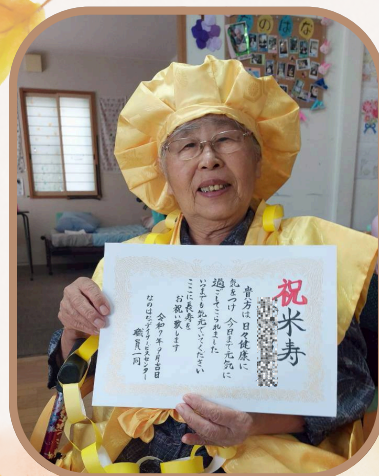 のはな
祝 米寿
貴方は日々健康に
気をつけ今日まで元気に
過ごしてこられました
いつまでも元気でいてください
ここに長寿を
お祝い致します
令和7年9月吉日
なのはなデイサービスセンター
職員一同